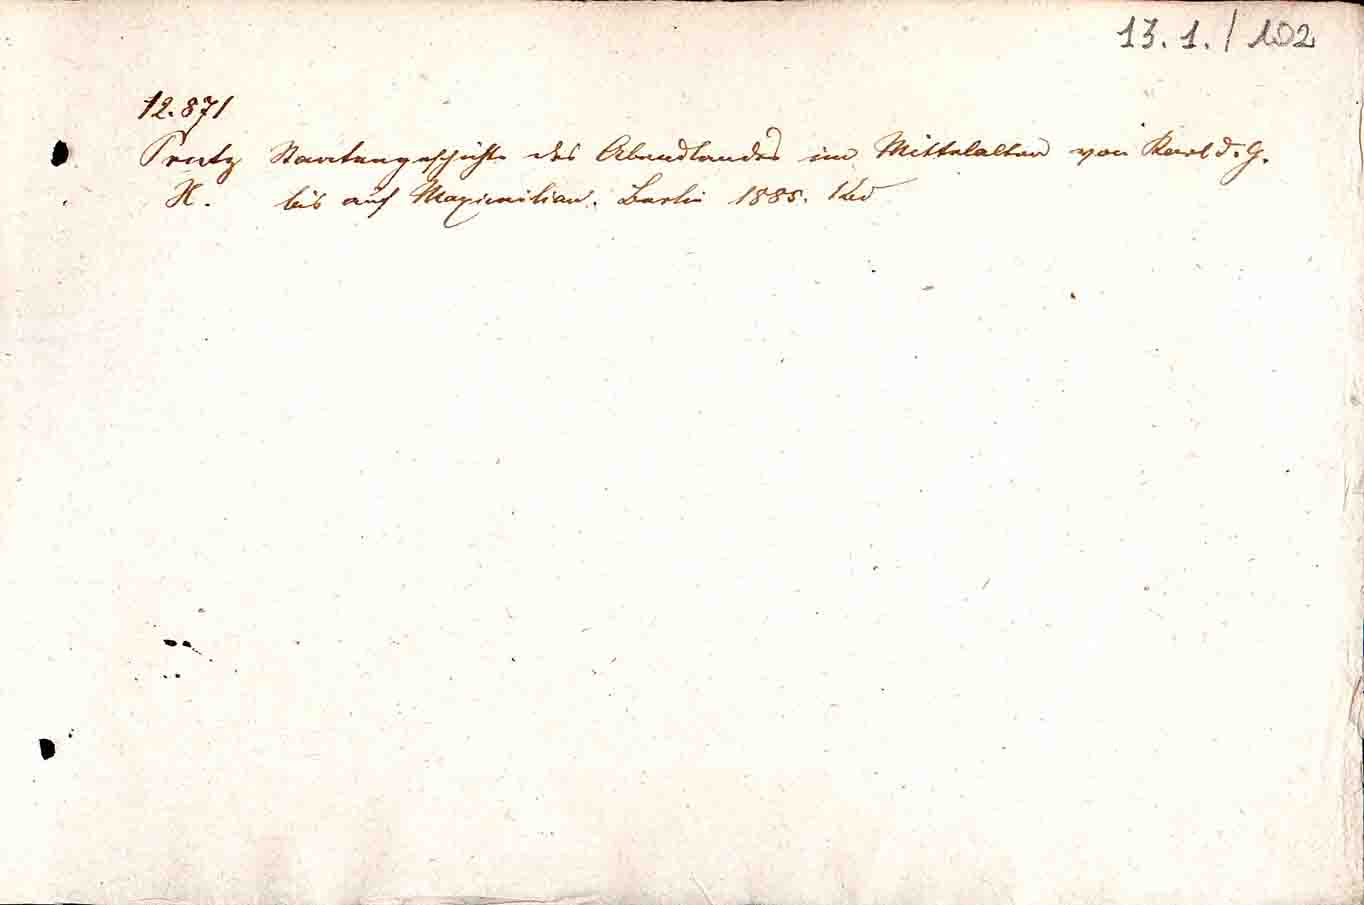 13. 1. / 102
12.871
Prutz Staatengeschichte des Abendlandes im Mittelalter von Karl d. G.
H. bis auf Maximilian. Berlin 1885.